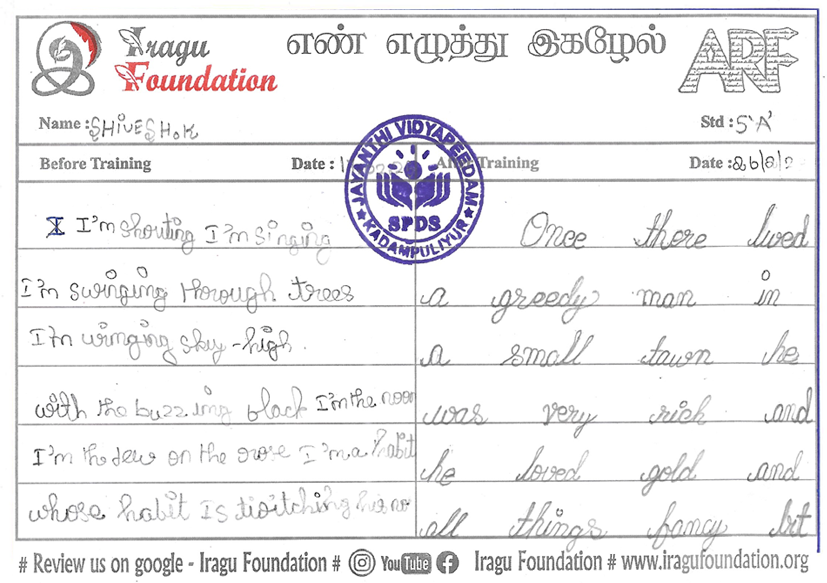 Iragu Foundation
எண் எழுத்து இகழேல்
ARF
Name : SHIVESH.K
Std : 5 'A'
Before Training Date :
After Training Date : 26/8/2
JAYANTHI VIDYAPEEDAM
SPDS
KADAMPULIYUR
I I'm shouting I'm singing
I'm swinging thorough trees
I'm winging sky-high.
with the buzzing black I'm the
I'm the dew on the rose I'm a habit
whose habit Is his
Once there lived
a greedy man in
a small tawn he
was very rich and
he loved gold and
all things fancy bit
# Review us on google - Iragu Foundation # YouTube Iragu Foundation # www.iragufoundation.org